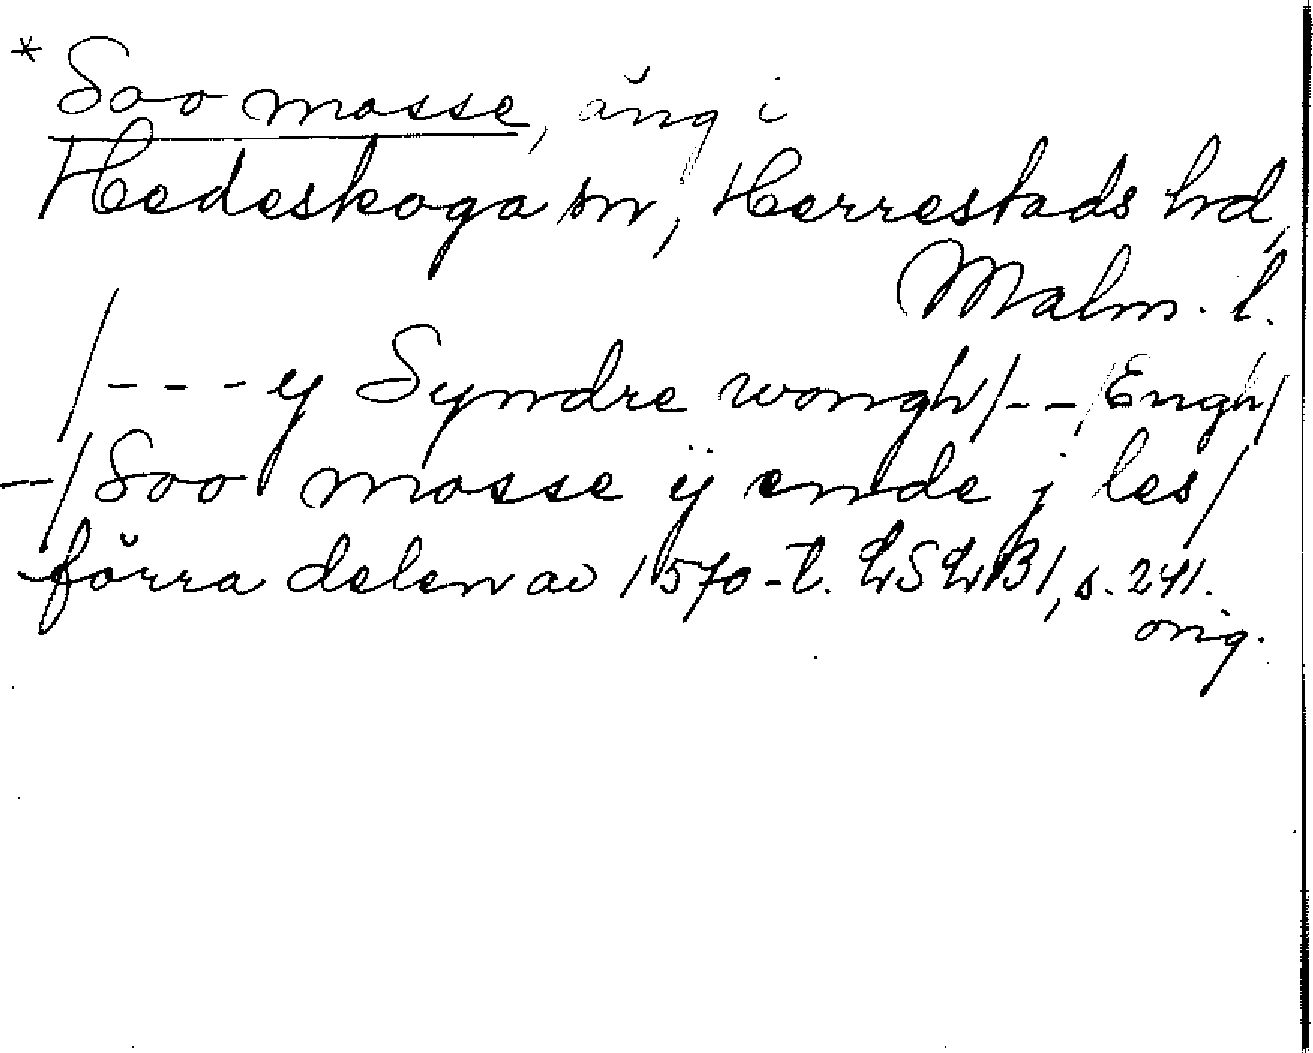 * Soo mosse, äng i
Hedeskoga sn, Herrestads hd,
Malm. l.
/---y Syndre wongh/--/Engh/
--/Soo mosse ÿ ende j les/
förra delen av 1570-t. LSLB1, s. 241.
orig.